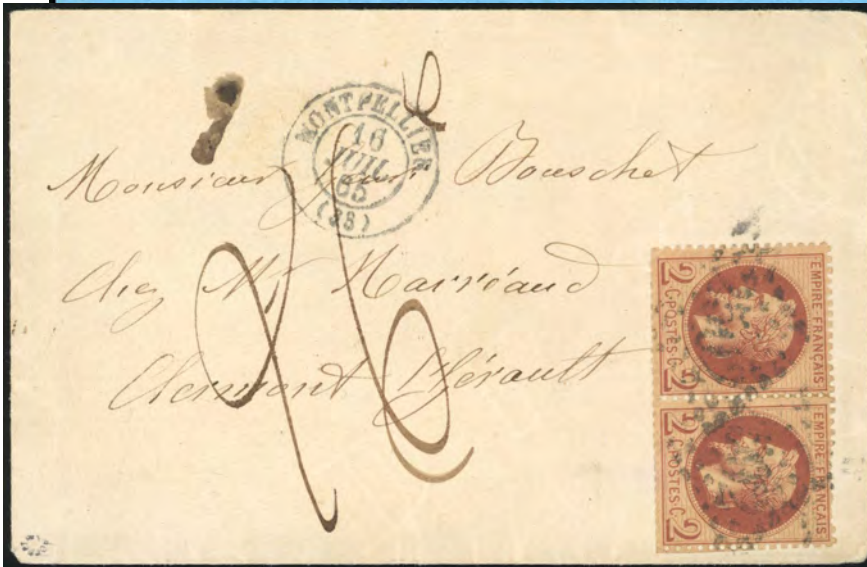 MONTPELLIER
16
JUIL
65
(33)
Monsieur Bouschet
chez Mr Marréaud
Clermont l'hérault
26
EMPIRE FRANÇAIS
2 C POSTES C. 2
EMPIRE FRANÇAIS
2 C POSTES C. 2